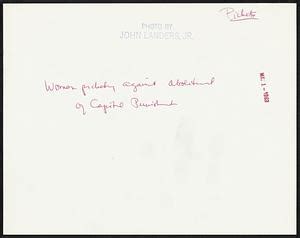 Pickets
PHOTO BY
JOHN LANDERS, JR.
Woman picketing against abolition
of Capital Punishment